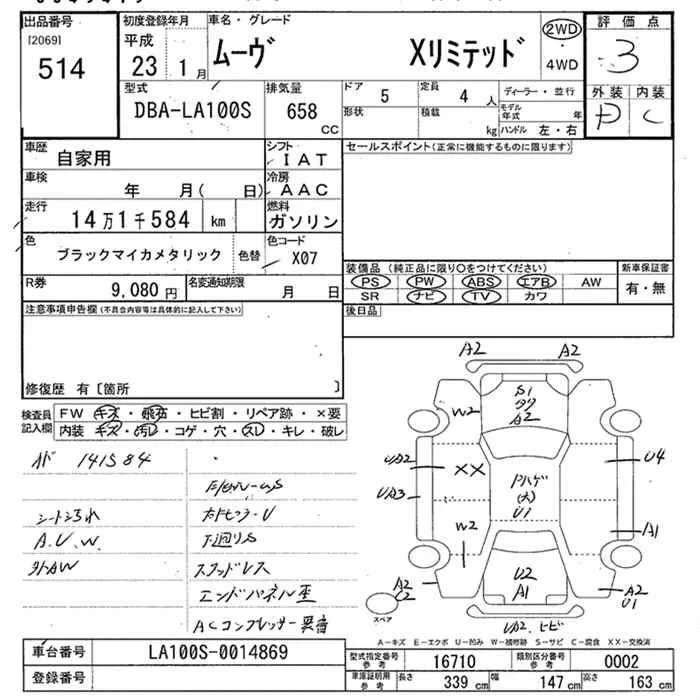 出品番号 初度登録年月 車名・グレード 2WD 評価点
[2069] 平成 ムーヴ Xリミテッド ・ 3
514 23 1月 4WD
型式 排気量 ドア 5 定員 4人 ディーラー・並行 外装 内装
DBA-LA100S 658 cc 形状 積載 kg モデル年式 年 C
ハンドル 左・右
車歴 自家用 シフト IAT セールスポイント(正常に機能するものに限ります)
車検 年 月( 日) 冷房 AAC
走行 14万1千584 km 燃料 ガソリン
色 ブラックマイカメタリック 色替 色コード X07
装備品 (純正品に限り○をつけてください) 新車保証書
PS PW ABS エアB AW 有・無
SR ナビ TV カワ
R券 9,080円 名変通知期限 月 日
後日品
注意事項申告欄(不具合内容等は具体的に記入して下さい)
修復歴 有〔箇所 〕
検査員記入欄 FW キズ・飛石・ヒビ割・リペア跡・×要
内装 キズ・汚レ・コゲ・穴・スレ・キレ・破レ
メド 141584
シートシミれ
A.U.W.
外AW
下廻りS
スタッドレス
エンドパネル歪
ACコンプレッサー異音
A2 A2
S1
A2
W2
UA2 XX U4
UA3 Pハゲ
(大)
U1
W2 A1
U2
A1
A2
C2
A2
U1
UA2 ヒビ
スペア
A-キズ E-エクボ U-凹み W-補修跡 S-サビ C-腐食 XX-交換済
車台番号 LA100S-0014869
登録番号
型式指定番号 参考 16710 類別区分番号 参考 0002
車庫証明用 参考 長さ 339 cm 幅 147 cm 高さ 163 cm